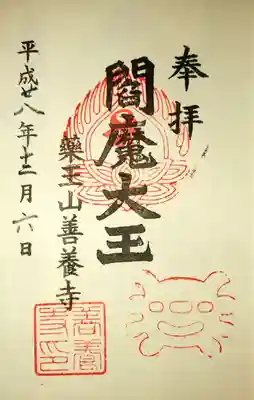 奉拝
閻魔大王
薬王山善養寺
平成廿八年十二月六日
善養
寺印